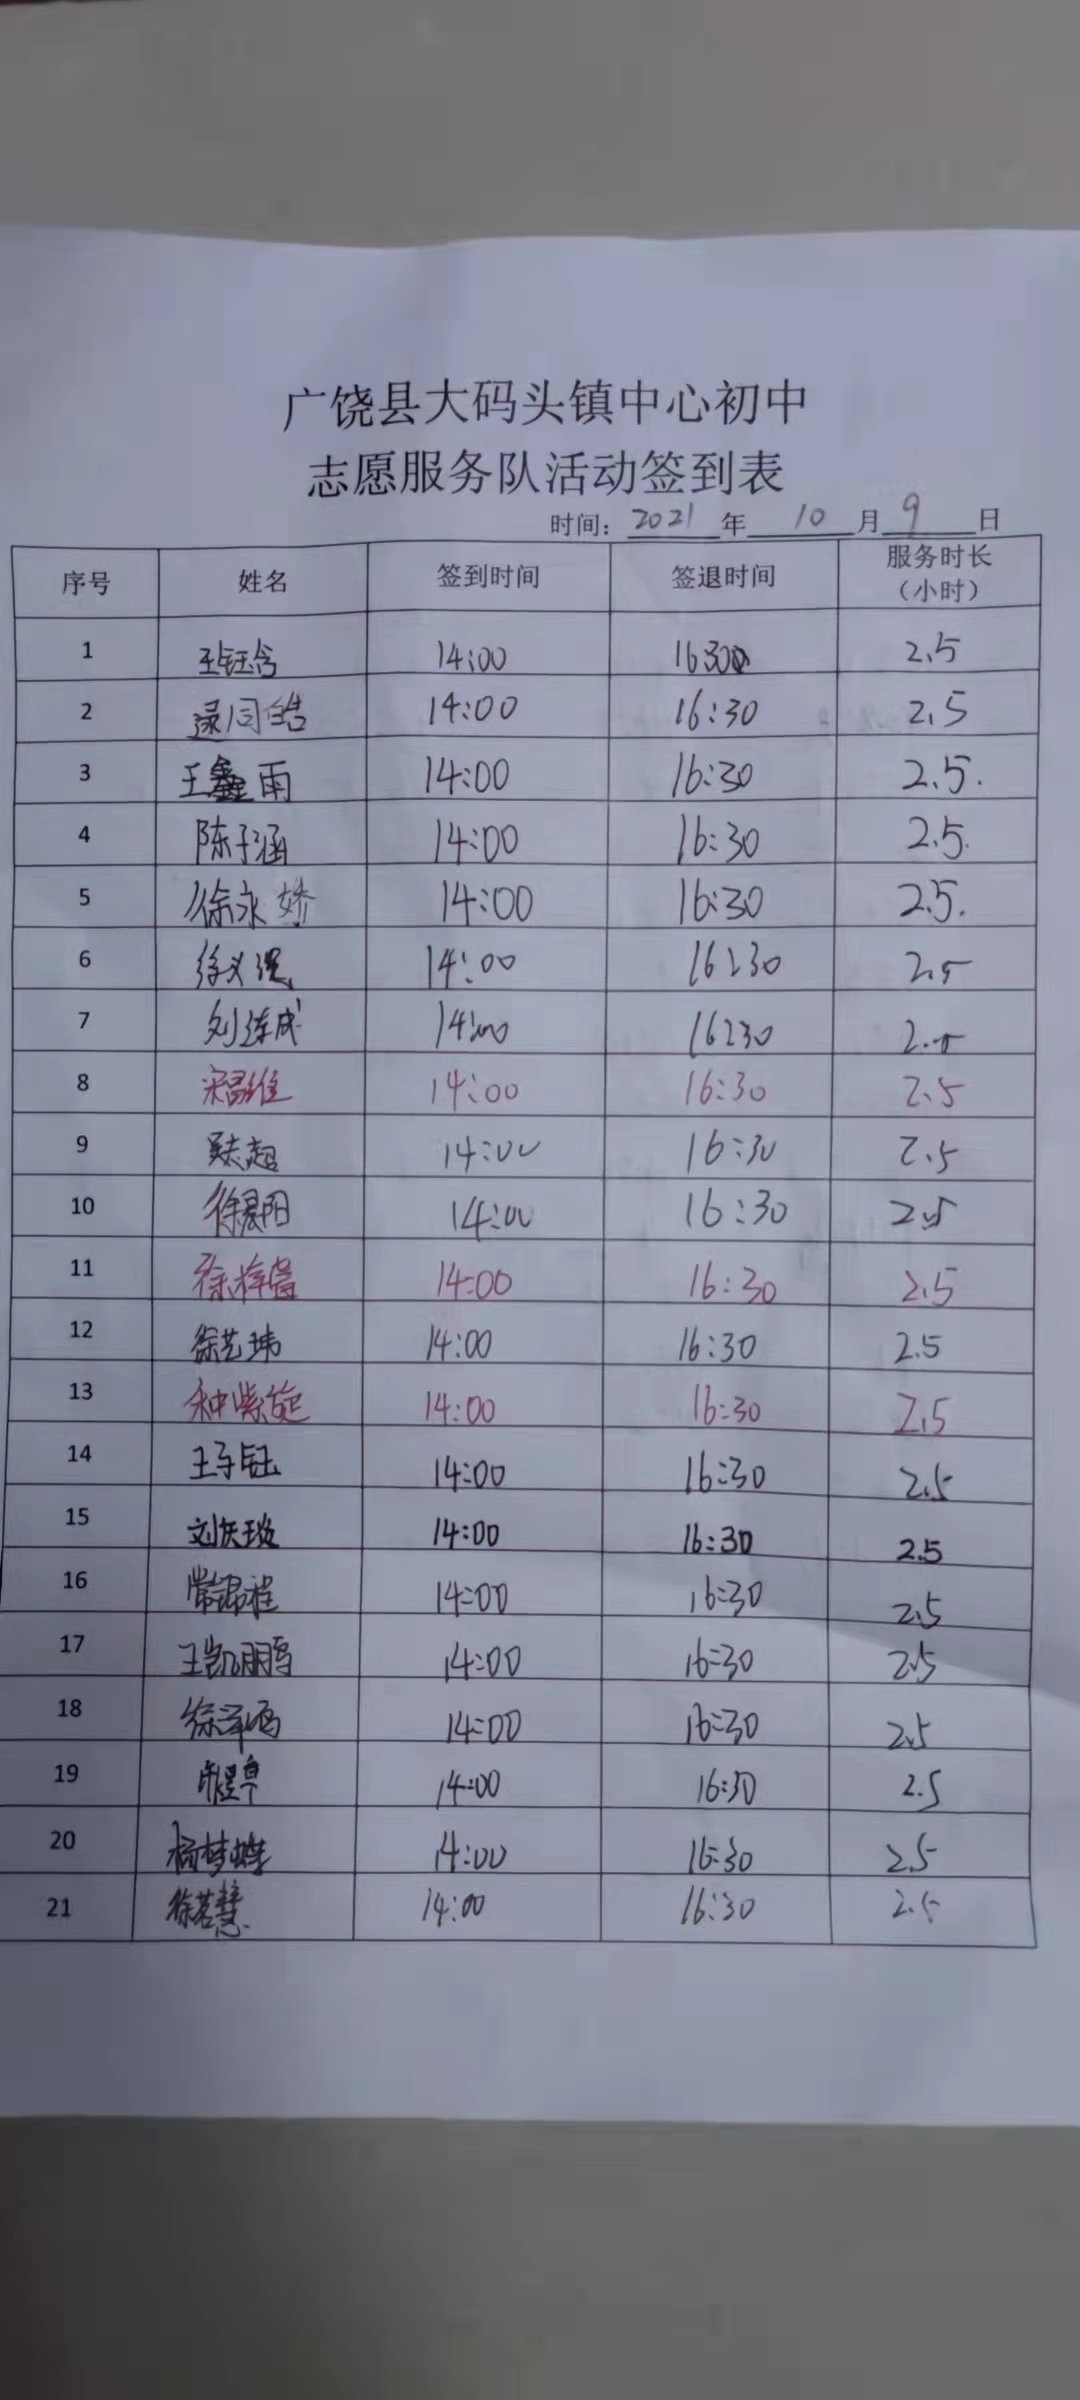 广饶县大码头镇中心初中
志愿服务队活动签到表
时间: 2021 年 10 月 9 日
序号 姓名 签到时间 签退时间 服务时长（小时）
1 王钰含 14:00 16:30 2.5
2 逯同皓 14:00 16:30 2.5
3 王鑫雨 14:00 16:30 2.5.
4 陈子涵 14:00 16:30 2.5.
5 徐永娇 14:00 16:30 2.5.
6 徐义 14:00 16:30 2.5
7 刘 成 14:00 16:30 2.5
8 宋 维 14:00 16:30 2.5
9 超 14:00 16:30 2.5
10 徐晨阳 14:00 16:30 2.5
11 徐梓 14:00 16:30 2.5
12 徐艺玮 14:00 16:30 2.5
13 种紫旋 14:00 16:30 2.5
14 王子钰 14:00 16:30 2.5
15 刘 14:00 16:30 2.5
16 常锦程 14:00 16:30 2.5
17 王凯鹏 14:00 16:30 2.5
18 徐泽 14:00 16:30 2.5
19 14:00 16:30 2.5
20 杨梦蝶 14:00 16:30 2.5
21 徐若慧 14:00 16:30 2.5